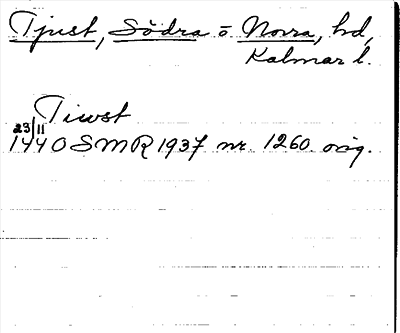 Tjust, Södra o Norra, hd,
Kalmar l.
Tiwst
23/11
1440 SMR 1937 nr. 1260. orig.